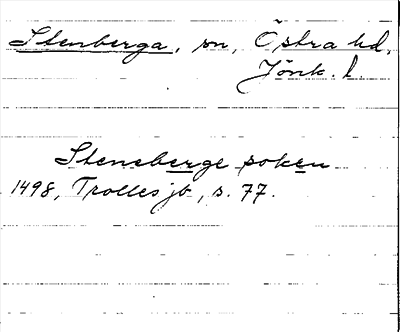 Stenberga, sn, Östra hd,
Jönk. l.
Steneberge soken
1498, Trolles jb, s. 77.